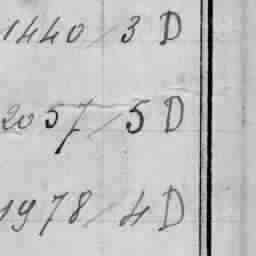 1440/3 D
2057/5 D
1978/4 D